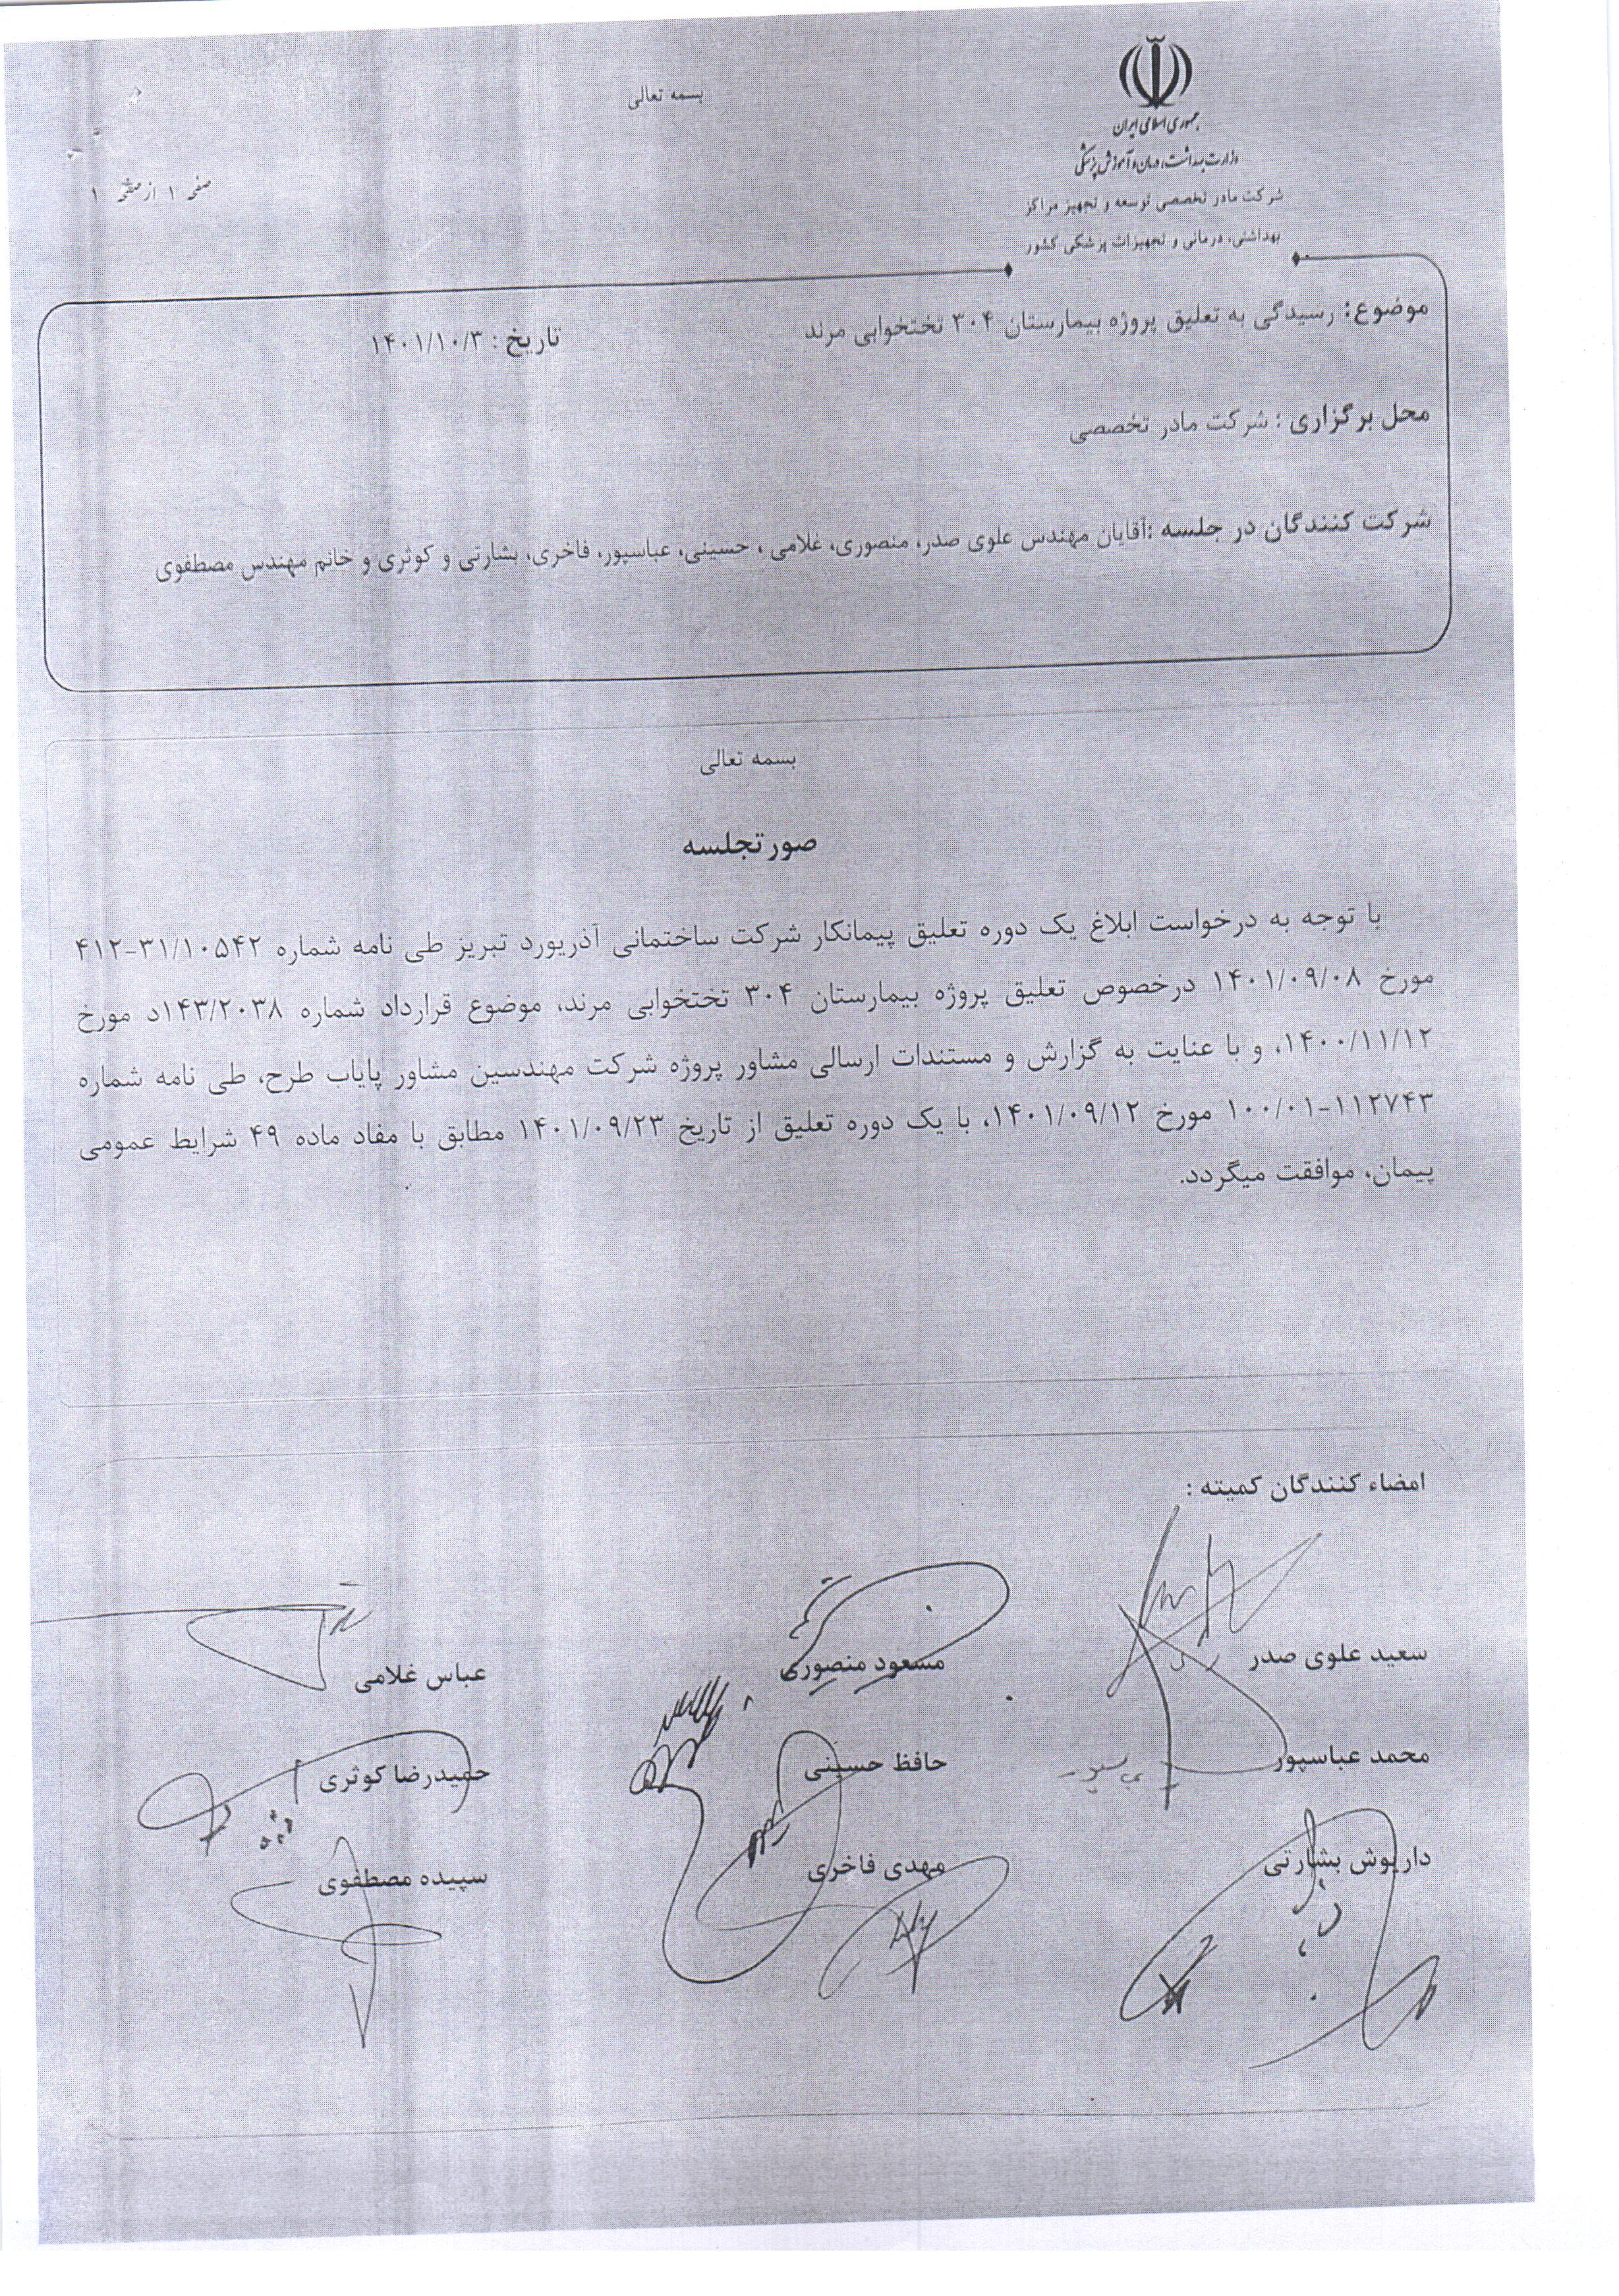 بسمه تعالی
جمهوری اسلامی ایران
وزارت بهداشت، درمان و آموزش پزشکی
شرکت مادر تخصصی توسعه و تجهیز مراکز
بهداشتی، درمانی و تجهیزات پزشکی کشور
صفحه ۱ از صفحه ۱
موضوع: رسیدگی به تعلیق پروژه بیمارستان ۳۰۴ تختخوابی مرند تاریخ : ۱۴۰۱/۱۰/۳
محل برگزاری : شرکت مادر تخصصی
شرکت کنندگان در جلسه :آقایان مهندس علوی صدر، منصوری، غلامی ، حسینی، عباسپور، فاخری، بشارتی و کوثری و خانم مهندس مصطفوی
بسمه تعالی
صورتجلسه
با توجه به درخواست ابلاغ یک دوره تعلیق پیمانکار شرکت ساختمانی آذریورد تبریز طی نامه شماره ۳۱/۱۰۵۴۲-۴۱۲
مورخ ۱۴۰۱/۰۹/۰۸ درخصوص تعلیق پروژه بیمارستان ۳۰۴ تختخوابی مرند، موضوع قرارداد شماره ۱۴۳/۲۰۳۸د مورخ
۱۴۰۰/۱۱/۱۲، و با عنایت به گزارش و مستندات ارسالی مشاور پروژه شرکت مهندسین مشاور پایاب طرح، طی نامه شماره
۱۱۲۷۴۳-۱۰۰/۰۱ مورخ ۱۴۰۱/۰۹/۱۲، با یک دوره تعلیق از تاریخ ۱۴۰۱/۰۹/۲۳ مطابق با مفاد ماده ۴۹ شرایط عمومی
پیمان، موافقت میگردد.
امضاء کنندگان کمیته :
سعید علوی صدر مسعود منصوری عباس غلامی
محمد عباسپور حافظ حسینی حمیدرضا کوثری
داریوش بشارتی مهدی فاخری سپیده مصطفوی